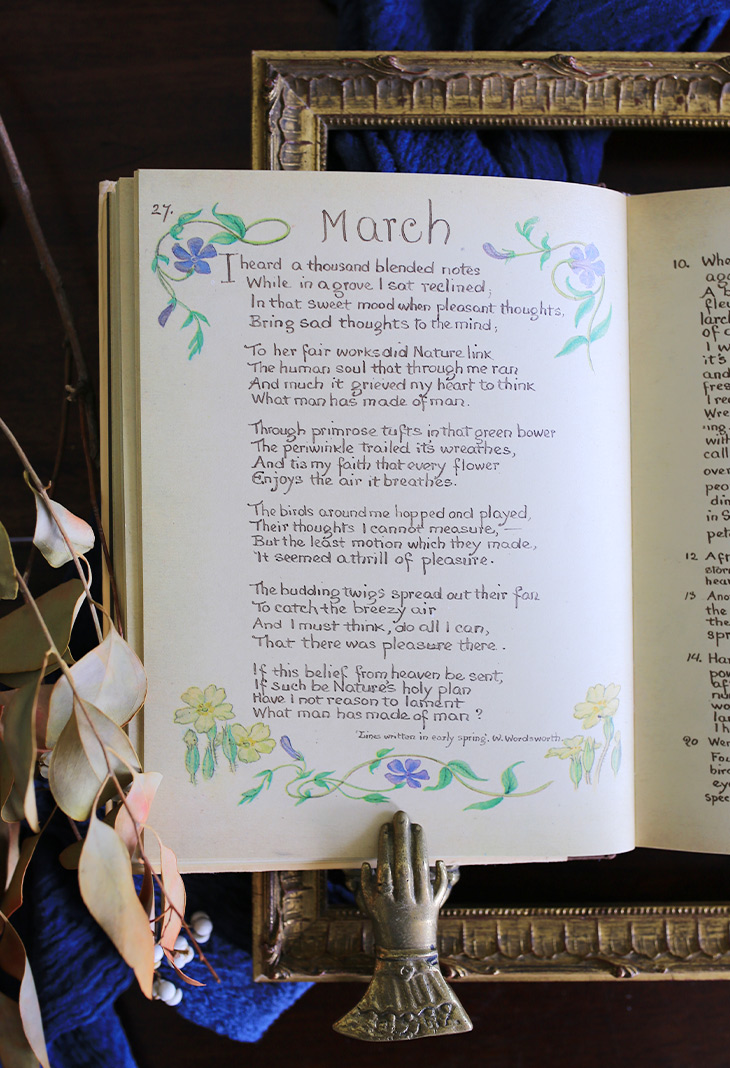 27.
March
I heard a thousand blended notes
While in a grove I sat reclined;
In that sweet mood when pleasant thoughts,
Bring sad thoughts to the mind;
To her fair works did Nature link
The human soul that through me ran
And much it grieved my heart to think
What man has made of man.
Through primrose tufts in that green bower
The periwinkle trailed it's wreathes,
And tis my faith that every flower
Enjoys the air it breathes.
The birds around me hopped and played,
Their thoughts I cannot measure,—
But the least motion which they made,
'It seemed a thrill of pleasure.
The budding twigs spread out their fan
To catch the breezy air
And I must think, do all I can,
That there was pleasure there..
If this belief from heaven be sent,
If such be Nature's holy plan
Have I not reason to lament
What man has made of man?
'Lines written in early spring'. W. Wordsworth.
10.
A
of
I
it's
and
I
with
call
over
in
12
13
the
14.
I
20
Spec